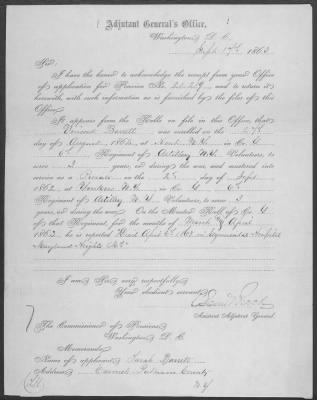 Adjutant General's Office,
Washington, D. C.
Sept 17th, 1863
Sir:
I have the honor to acknowledge the receipt from your Office
of application for Pension No. 22.229, and to return it
herewith, with such information as is furnished by the files of this
Office.
It appears from the Rolls on file in this Office, that
Vincent Barrett was enrolled on the 27th
day of August, 1862, at Kent N.Y. in Co. G
6th Regiment of Artillery N.Y. Volunteers, to
serve 3 years, or during the war, and mustered into
service as a Private on the 2d day of Sept
1862, at Yonkers N.Y. in Co. G 6th
Regiment of Artillery N.Y. Volunteers, to serve 3
years, or during the war. On the Muster Roll of Co. G
of that Regiment, for the months of March & April
1863, he is reported Died April 6th 1863 in Regimental Hospital
Maryland Heights Md.
I am, Sir, very respectfully,
Your obedient servant,
Assistant Adjutant General.
The Commissioner of Pensions,
Washington, D. C.
Memoranda:
Name of applicant, Sarah Barrett
Address, Carmel Putnam County
N.Y